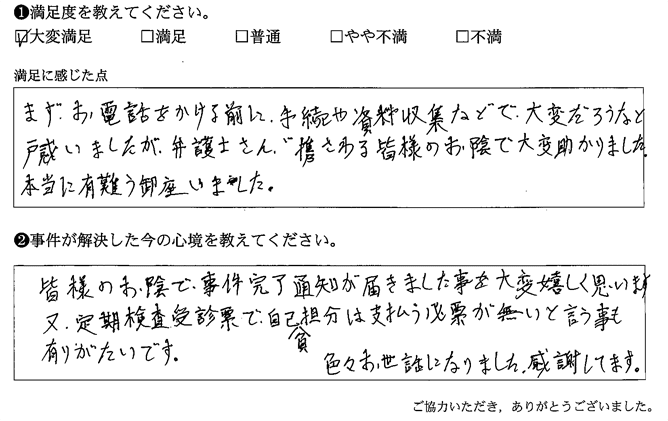 ❶満足度を教えてください。
☑大変満足 □満足 □普通 □やや不満 □不満
満足に感じた点
まず、お電話をかける前に、手続や資料収集などで、大変だろうなと
戸惑いましたが、弁護士さん、携さわる皆様のお陰で大変助かりました。
本当に有難う御座いました。
❷事件が解決した今の心境を教えてください。
皆様のお陰で、事件完了通知が届きました事を大変嬉しく思います
又、定期検査受診票で、自己担分は支払う必票が無いと言う事も
負
有りがたいです。
色々お世話になりました。感謝してます。
ご協力いただき，ありがとうございました。